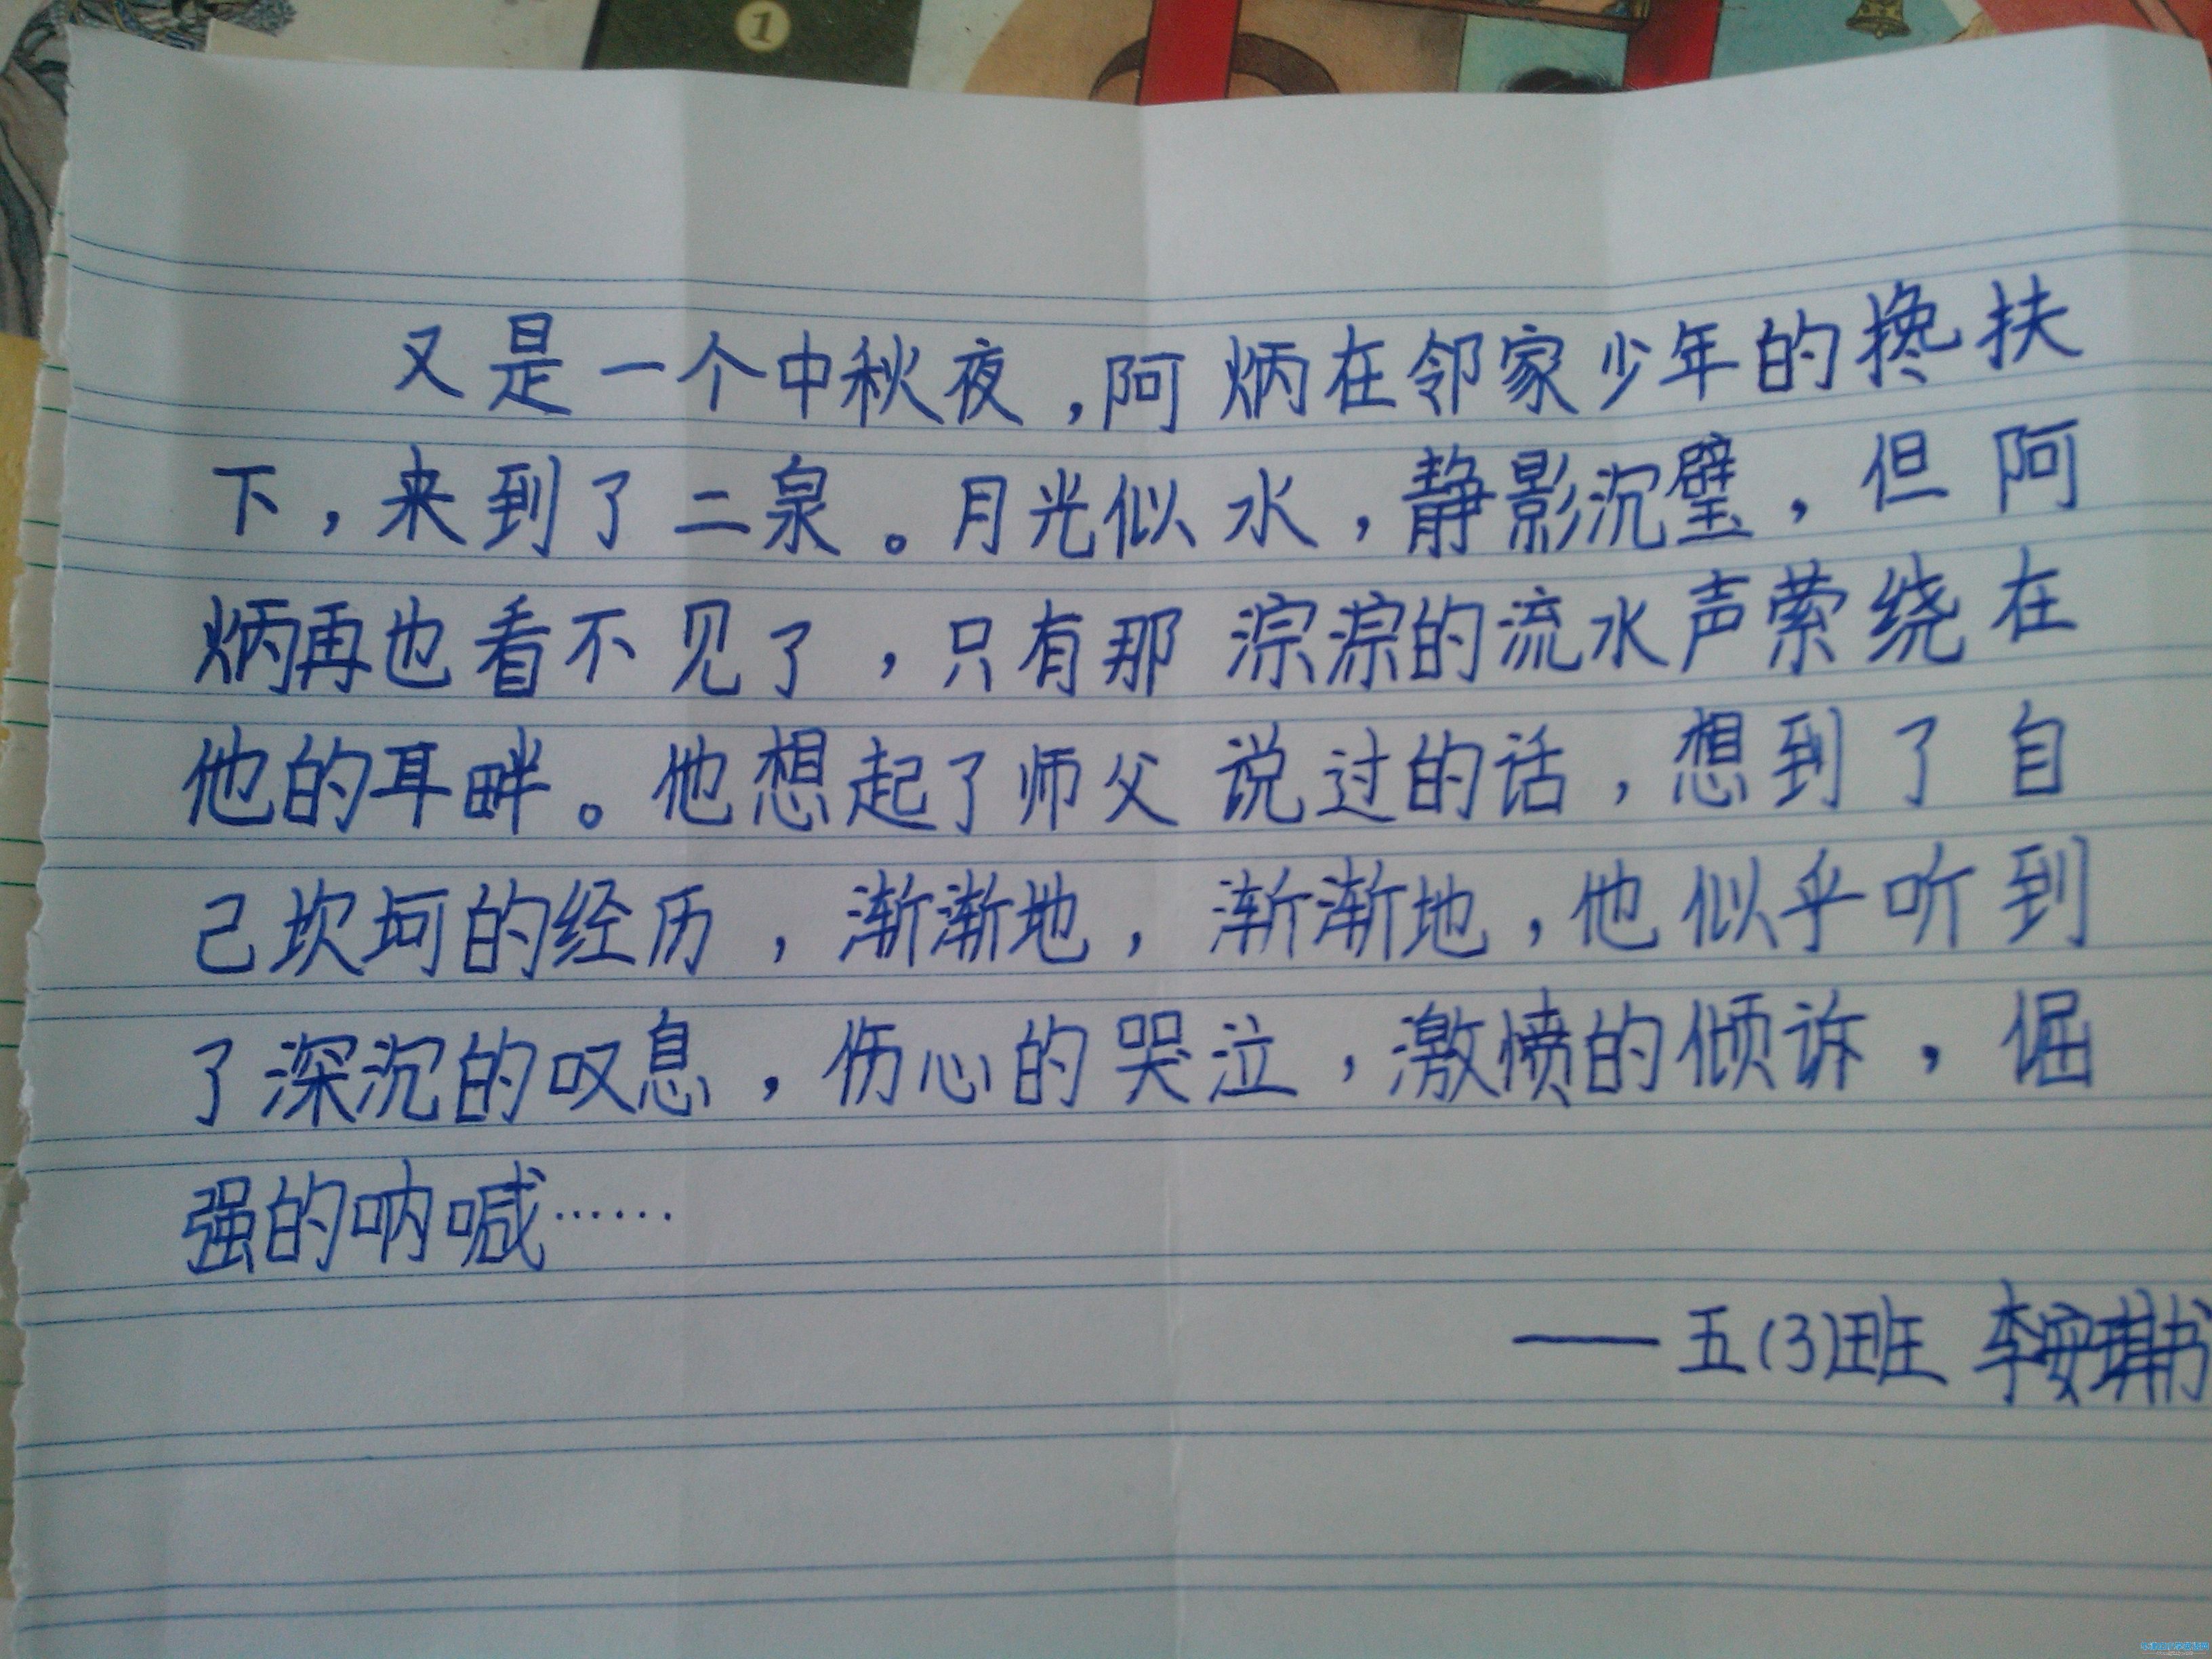 1
又是一个中秋夜,阿炳在邻家少年的搀扶
下,来到了二泉。月光似水,静影沉璧,但阿
炳再也看不见了,只有那淙淙的流水声萦绕在
他的耳畔。他想起了师父说过的话,想到了自
己坎坷的经历,渐渐地,渐渐地,他似乎听到
了深沉的叹息,伤心的哭泣,激愤的倾诉,倔
强的呐喊……
——五(3)班 李安琪书